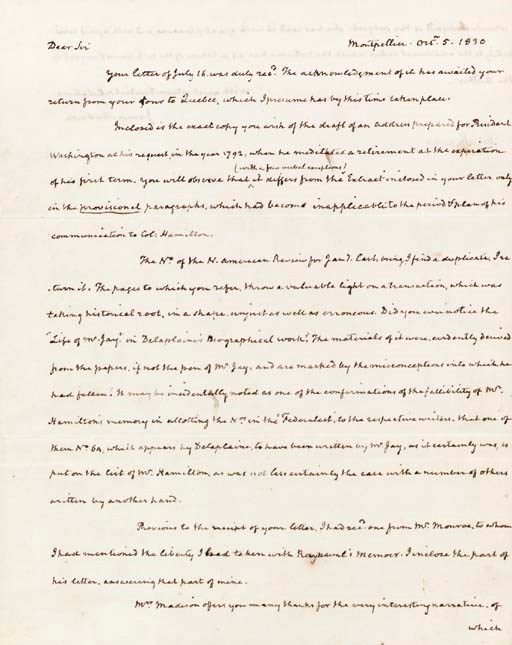 Dear Sir Montpellier. Octr. 5. 1830
Your letter of July 16. was duly recd. The acknowledgment of it has awaited your
return from your Tour to Quebec, which I presume has by this time taken place.
Inclosed is the exact copy you wish of the draft of an address prepared for President
Washington at his request, in the year 1792, when he meditated a retirement at the expiration
(with a few verbal exceptions)
of his first term. You will observe that it differs from the Extract inclosed in your letter only
in the provisional paragraphs, which had become inapplicable to the period & plan of his
communication to Col: Hamilton.
The No. of the N. American Review for Jany. last, being I find a duplicate, I re
turn it. The pages to which you refer, throw a valuable light on a transaction, which was
taking historical root, in a shape unjust as well as erroneous. Did you ever notice the
"Life of Mr Jay" in Delaplaine's Biographical work? The materials of it were evidently derived
from the papers, if not the pen of Mr. Jay, and are marked by the misconceptions into which he
had fallen. It may be incidentally noted as one of the confirmations of the fallibility of Mr.
Hamilton's memory in allotting the Nos. in the "Federalist, to the respective writers, that one of
them No. 64, which appears by Delaplaine, to have been written by Mr. Jay, as it certainly was, is
put on the list of Mr. Hamilton, as was not less certainly the case with a number of others
written by another hand.
Previous to the receipt of your letter, I had recd. one from Mr. Monroe, to whom
I had mentioned the liberty I had taken with Rayneval's Memoir. I inclose the part of
his letter, answering that part of mine.
Mrs. Madison offers you many thanks for the very interesting narrative, of
which